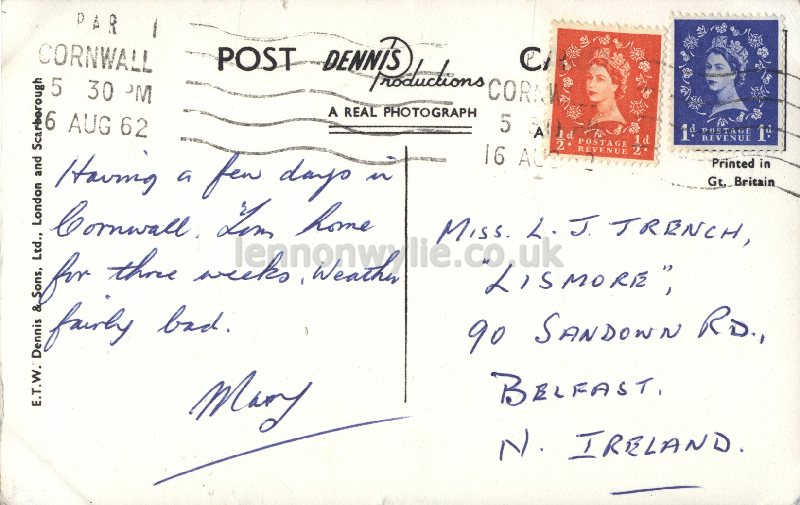 PAR 1
CORNWALL
5 30 PM
16 AUG 62
POST DENNIS Productions CA
A REAL PHOTOGRAPH
CORNW
5 30
16 AUG 62
½d POSTAGE REVENUE ½d
1d POSTAGE REVENUE 1d
Printed in
Gt. Britain
E.T.W. Dennis & Sons, Ltd., London and Scarborough
Having a few days in
Cornwall. Tom home
for three weeks. Weather
fairly bad.
Mary
MISS. L. J. TRENCH,
"LISMORE",
90 SANDOWN RD.,
BELFAST.
N. IRELAND.
lennonwylie.co.uk